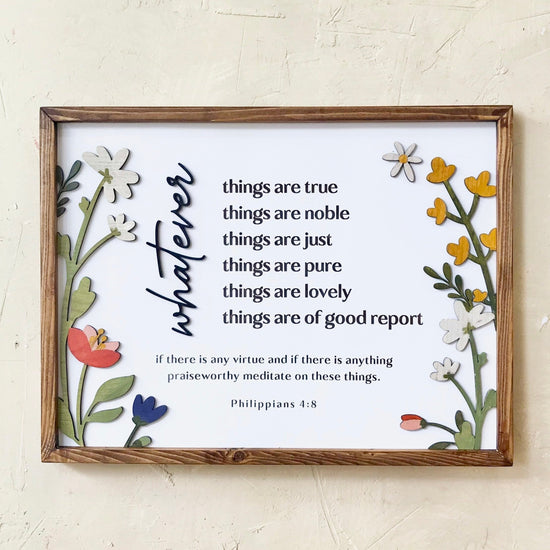 whatever
things are true
things are noble
things are just
things are pure
things are lovely
things are of good report
if there is any virtue and if there is anything
praiseworthy meditate on these things.
Philippians 4:8